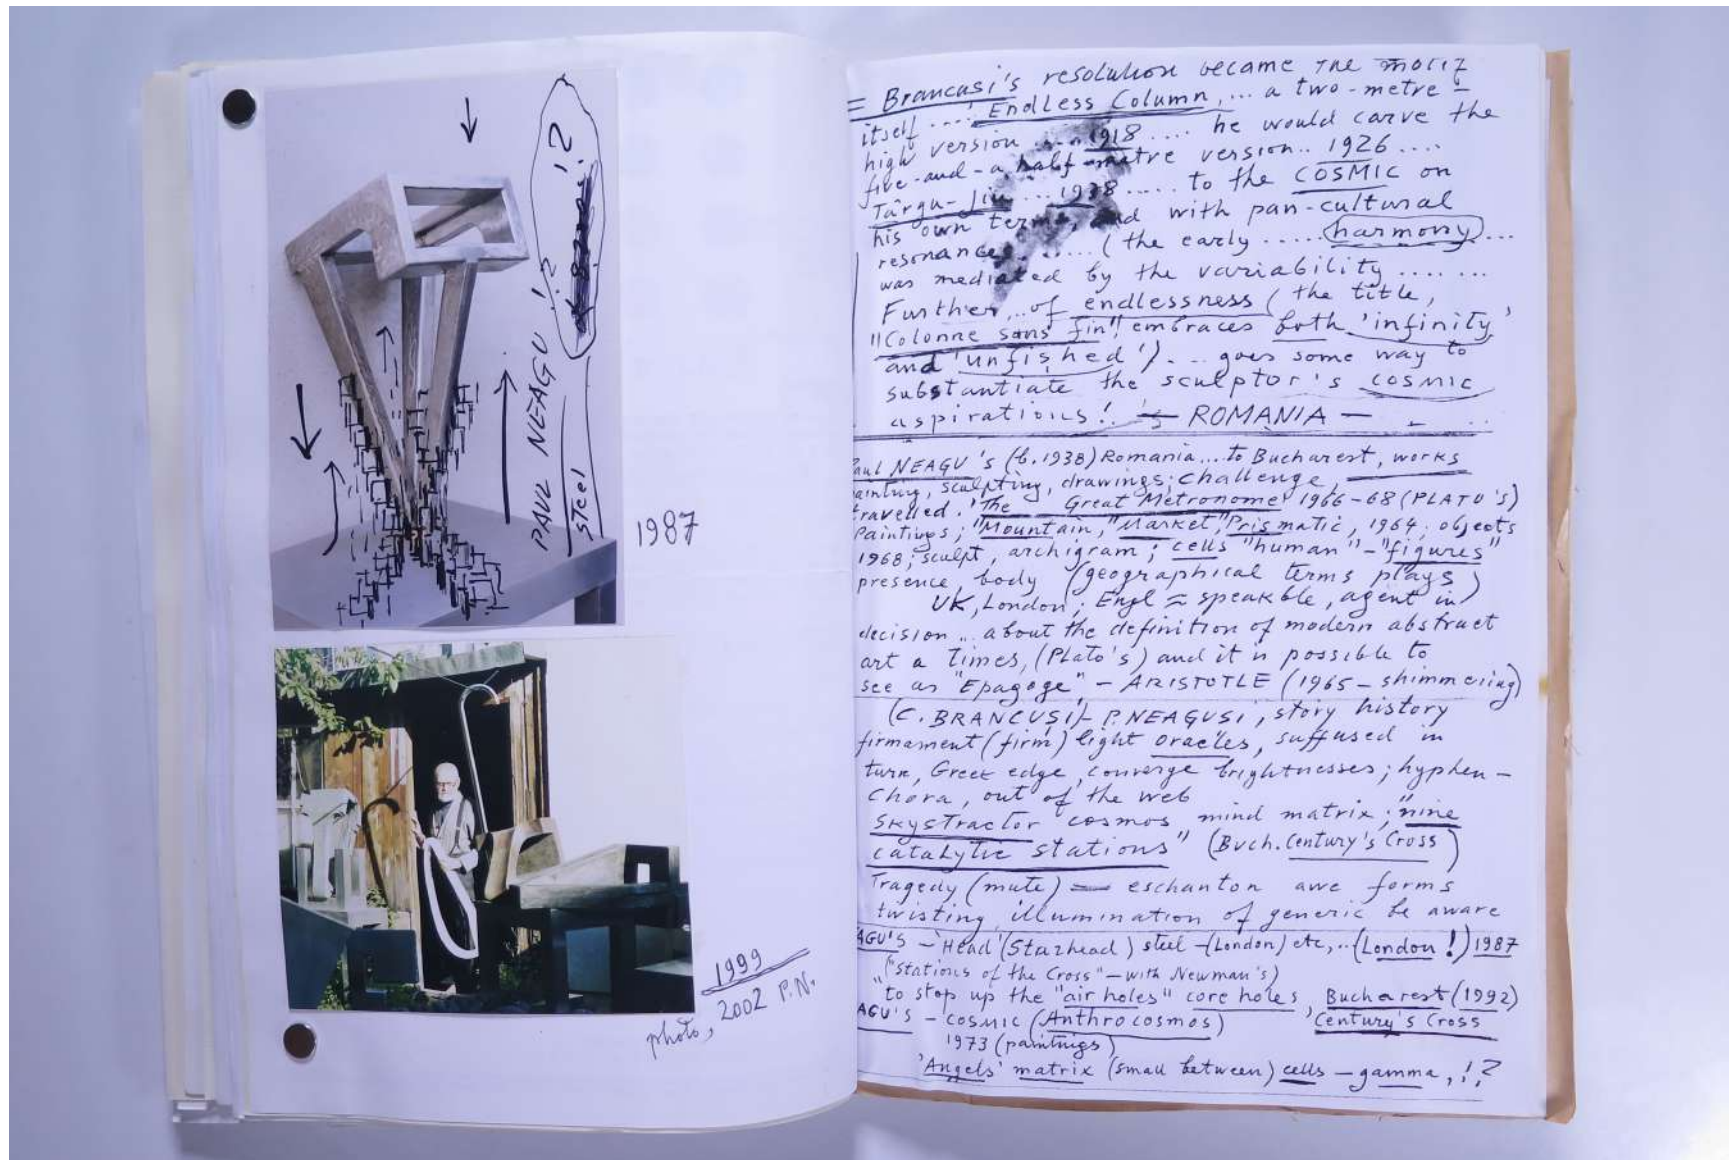 PAUL NEAGU !?
steel
!?
1987
1999
2002 P.N.
photo,
= Brancusi's resolution became the motif
itself ....: Endless Column, ... a two-metre-
high version .... 1918 .... he would carve the
five-and-a half-metre version.. 1926 ....
Târgu-Jiu .... 1938 ..... to the COSMIC on
his own terms, and with pan-cultural
resonances ...... (the early ..... harmony) ...
was mediated by the variability .... ...
Further ... of endlessness (the title,
"Colonne sans fin", embraces both 'infinity'
and 'unfished'). .. goes some way to
substantiate the sculptor's cosmic
aspirations! — ROMANIA —
Paul NEAGU's (b.1938) Romania.... to Bucharest, works
ainting, sculpting, drawings; challenge,
travelled. 'The Great Metronome' 1966-68 (PLATO'S)
Paintings; "Mountain," "Market," Prismatic, 1964; objects
1968; sculpt, archigram; cells "human" - "figures"
presence, body (geographical terms plays)
UK, London; Engl ≈ speakble, agent in
decision .. about the definition of modern abstract
art a times, (Plato's) and it is possible to
see as "Epagoge" - ARISTOTLE (1965 - shimmering)
(C. BRANCUȘI) - P. NEAGUSI, story history
firmament (firm) light oracles, suffused in
turn, Greek edge, converge brightnesses; hyphen -
Chora, out of the web
SKYSTractor cosmos mind matrix; "nine
catalytic stations" (Buch. Century's Cross)
Tragedy (mute) = eschanton awe forms
twisting illumination of generic be aware
AGU'S - 'Head' (Starhead) steel - (London) etc, .. (London!) 1987
("Stations of the Cross" - with Newman's)
"to stop up the "air holes" core holes, Bucharest (1992)
AGU'S - COSMIC (Anthrocosmos) Century's Cross
1973 (paintings)
'Angels' matrix (small between) cells - gamma, !?